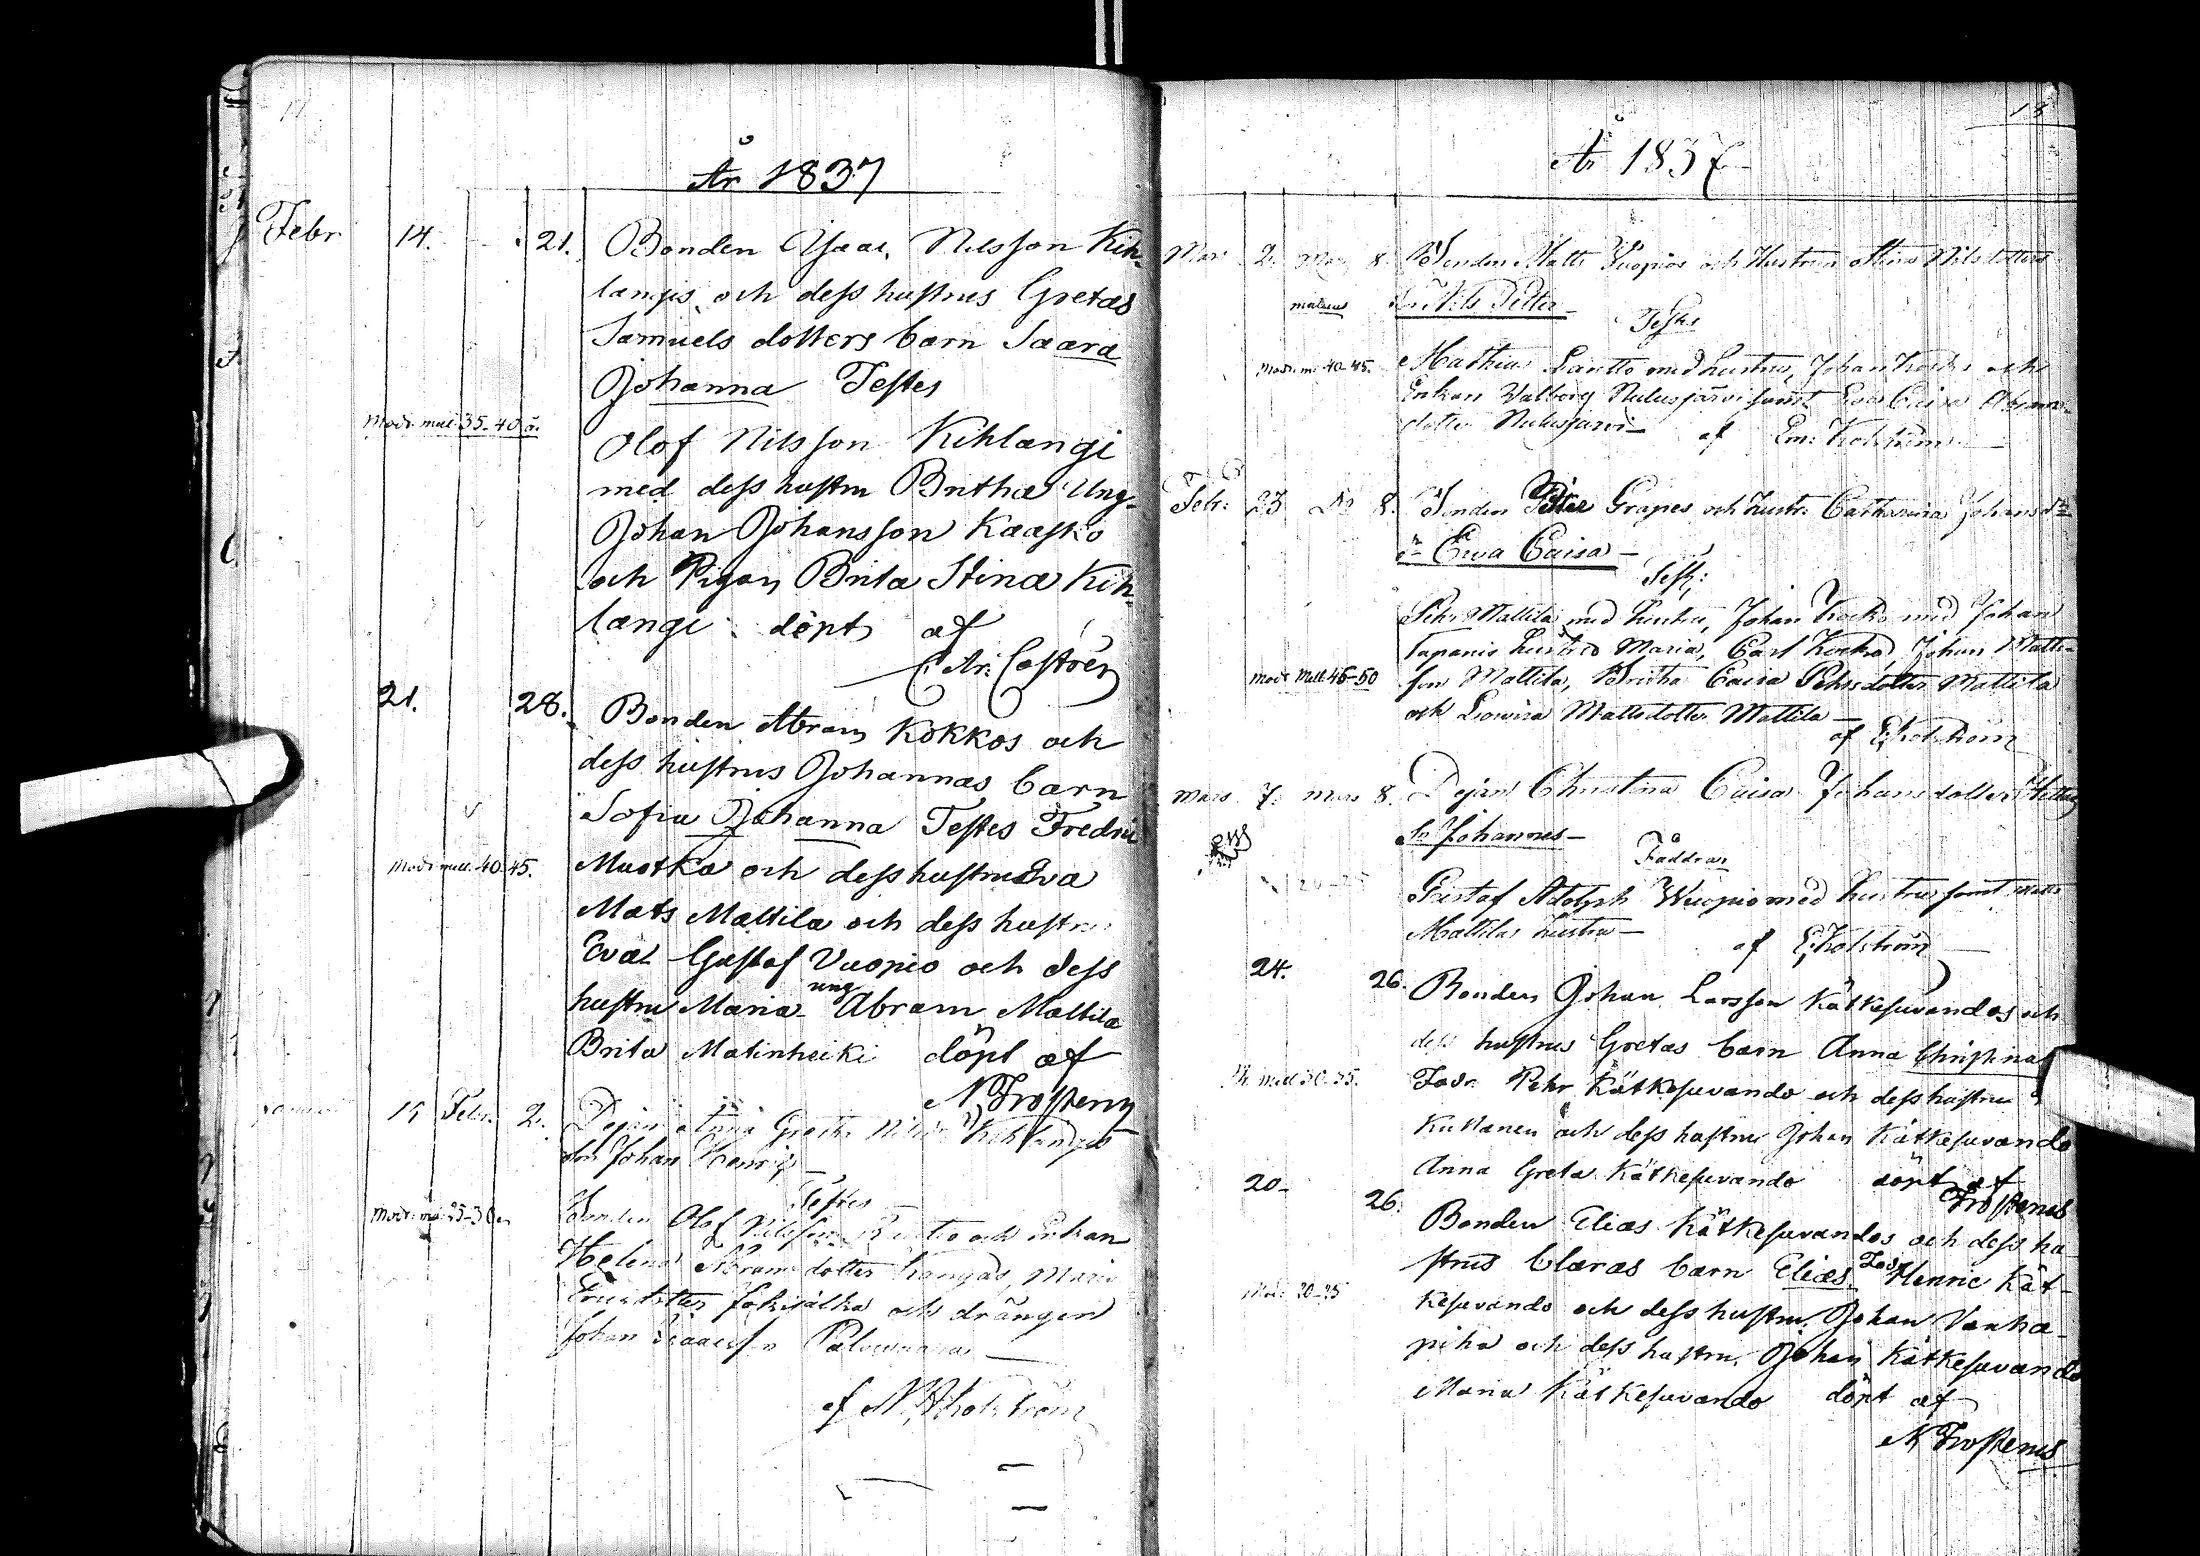 År 1837
Febr. 14. 21. Bonden Isaac Nilsson Kih-
langis och dess hustrus Gretas
Samuels dotters barn Saara
Johanna Testes
Modr. mell. 35-40 å.
Olof Nilsson Kihlangi
med dess hustru Britha Ung.
Johan Johansson Kaasko
och Pigan Brita Stina Kih-
langi döpt af
Castrén
21. 28. Bonden Abram Kokkos och
dess hustrus Johannas barn
Sofia Johanna Testes Fredric
Modr. mell. 40-45.
Muotka och dess hustru Eva
Mats Mattila och dess hustru
Eva Gustaf Vuopio och dess
hustru Maria ung Abram Mattila
Brita Matinheiki döpt af
N Frostenus
15 Febr. 2. Pejan Anna Greta Kihlangis
Son Johan Henric
Testes
Modr. 25-30
Bonden Olof Nilsson och Enkan
Helena Abramsdotter Kangas, Maria
Ericsdotter och drängen
Johan Isaacsson Palovaara
af
18
År 1837
Mars 2. Mars 8. Bonden Matts Vuopios och Hustrus Stina Nilsdotters
Sn Nils Petter
Testes
Modr. m. 40-45.
Mathias Lantto med hustru, Johan Kocko och
Enkan Valborg Nulusjärvi samt Eva Caisa Abrams-
dotter Nulusjärvi af Em: Kolström
Febr: 23 8. Bonden Petter Grapes och Hustr. Catharina Johansdr
Ewa Caisa
Test:
Pehr Mattila med hustru, Johan Kocko med Johan
Tapanis hustru Maria, Carl Kocko, Johan Matts-
Modr. Mell. 45-50
son Mattila, Britha Caisa Pehrsdotter Mattila
och Lovisa Mattsdotter Mattila
af E, Kolström
Mars 7. Mars 8. Pejan Christina Caisa Johansdotters
Sn Johannes
Faddrar
Gustaf Adolph Wuopio med hustru samt Matts
Mattilas hustru
af E, Kolström
24. 26. Bonden Johan Larsson Kätkesuvandos och
dess hustrus Gretas barn Anna Christina
mell 30-35.
Fadr. Pehr Kätkesuvando och dess hustru
och dess hustru Johan Kätkesuvando
Anna Greta Kätkesuvando döpt af
Frostenus
20. 26. Bonden Elias Kätkesuvandos och dess hu-
strus Claras barn Elias. Fadr Henric Kät-
20-25
kesuvando och dess hustru. Johan Vanha-
piha och dess hustru. Johan Kätkesuvando
Maria Kätkesuvando döpt af
N Frostenus